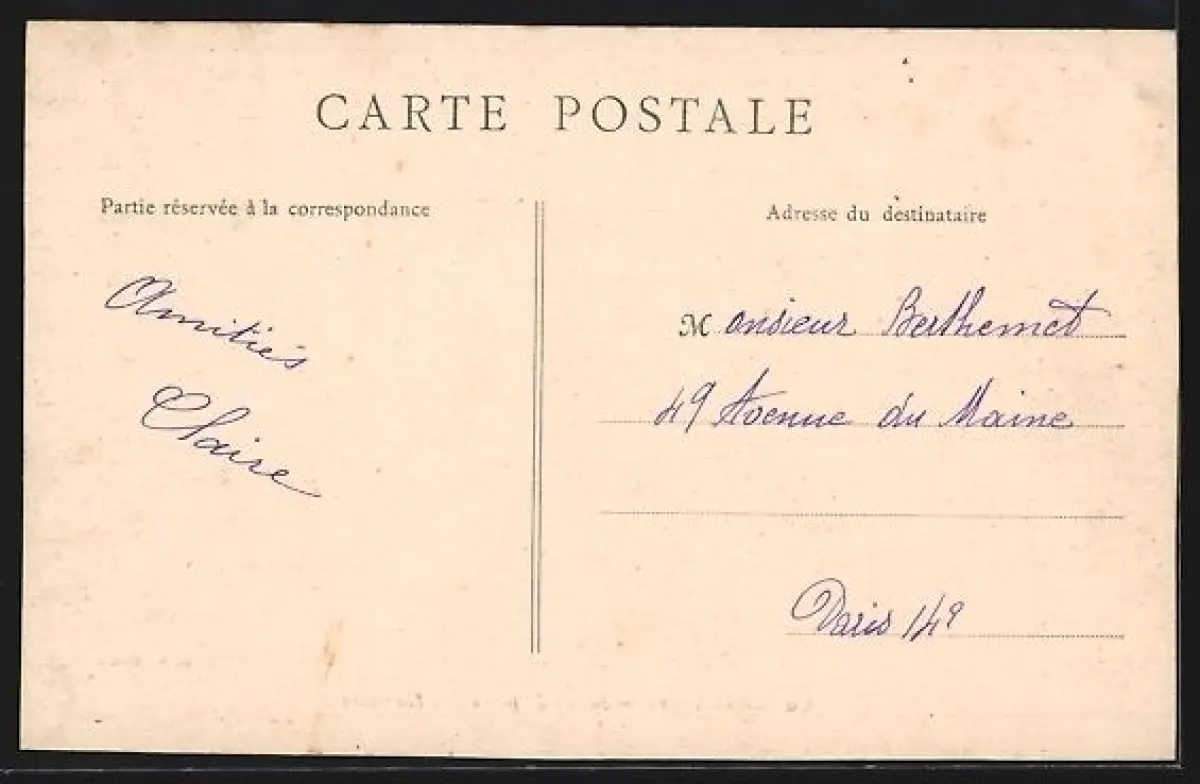 CARTE POSTALE
Partie réservée à la correspondance
Amitiés
Claire
Adresse du destinataire
Monsieur Berthemet
49 Avenue du Maine
Paris 14e